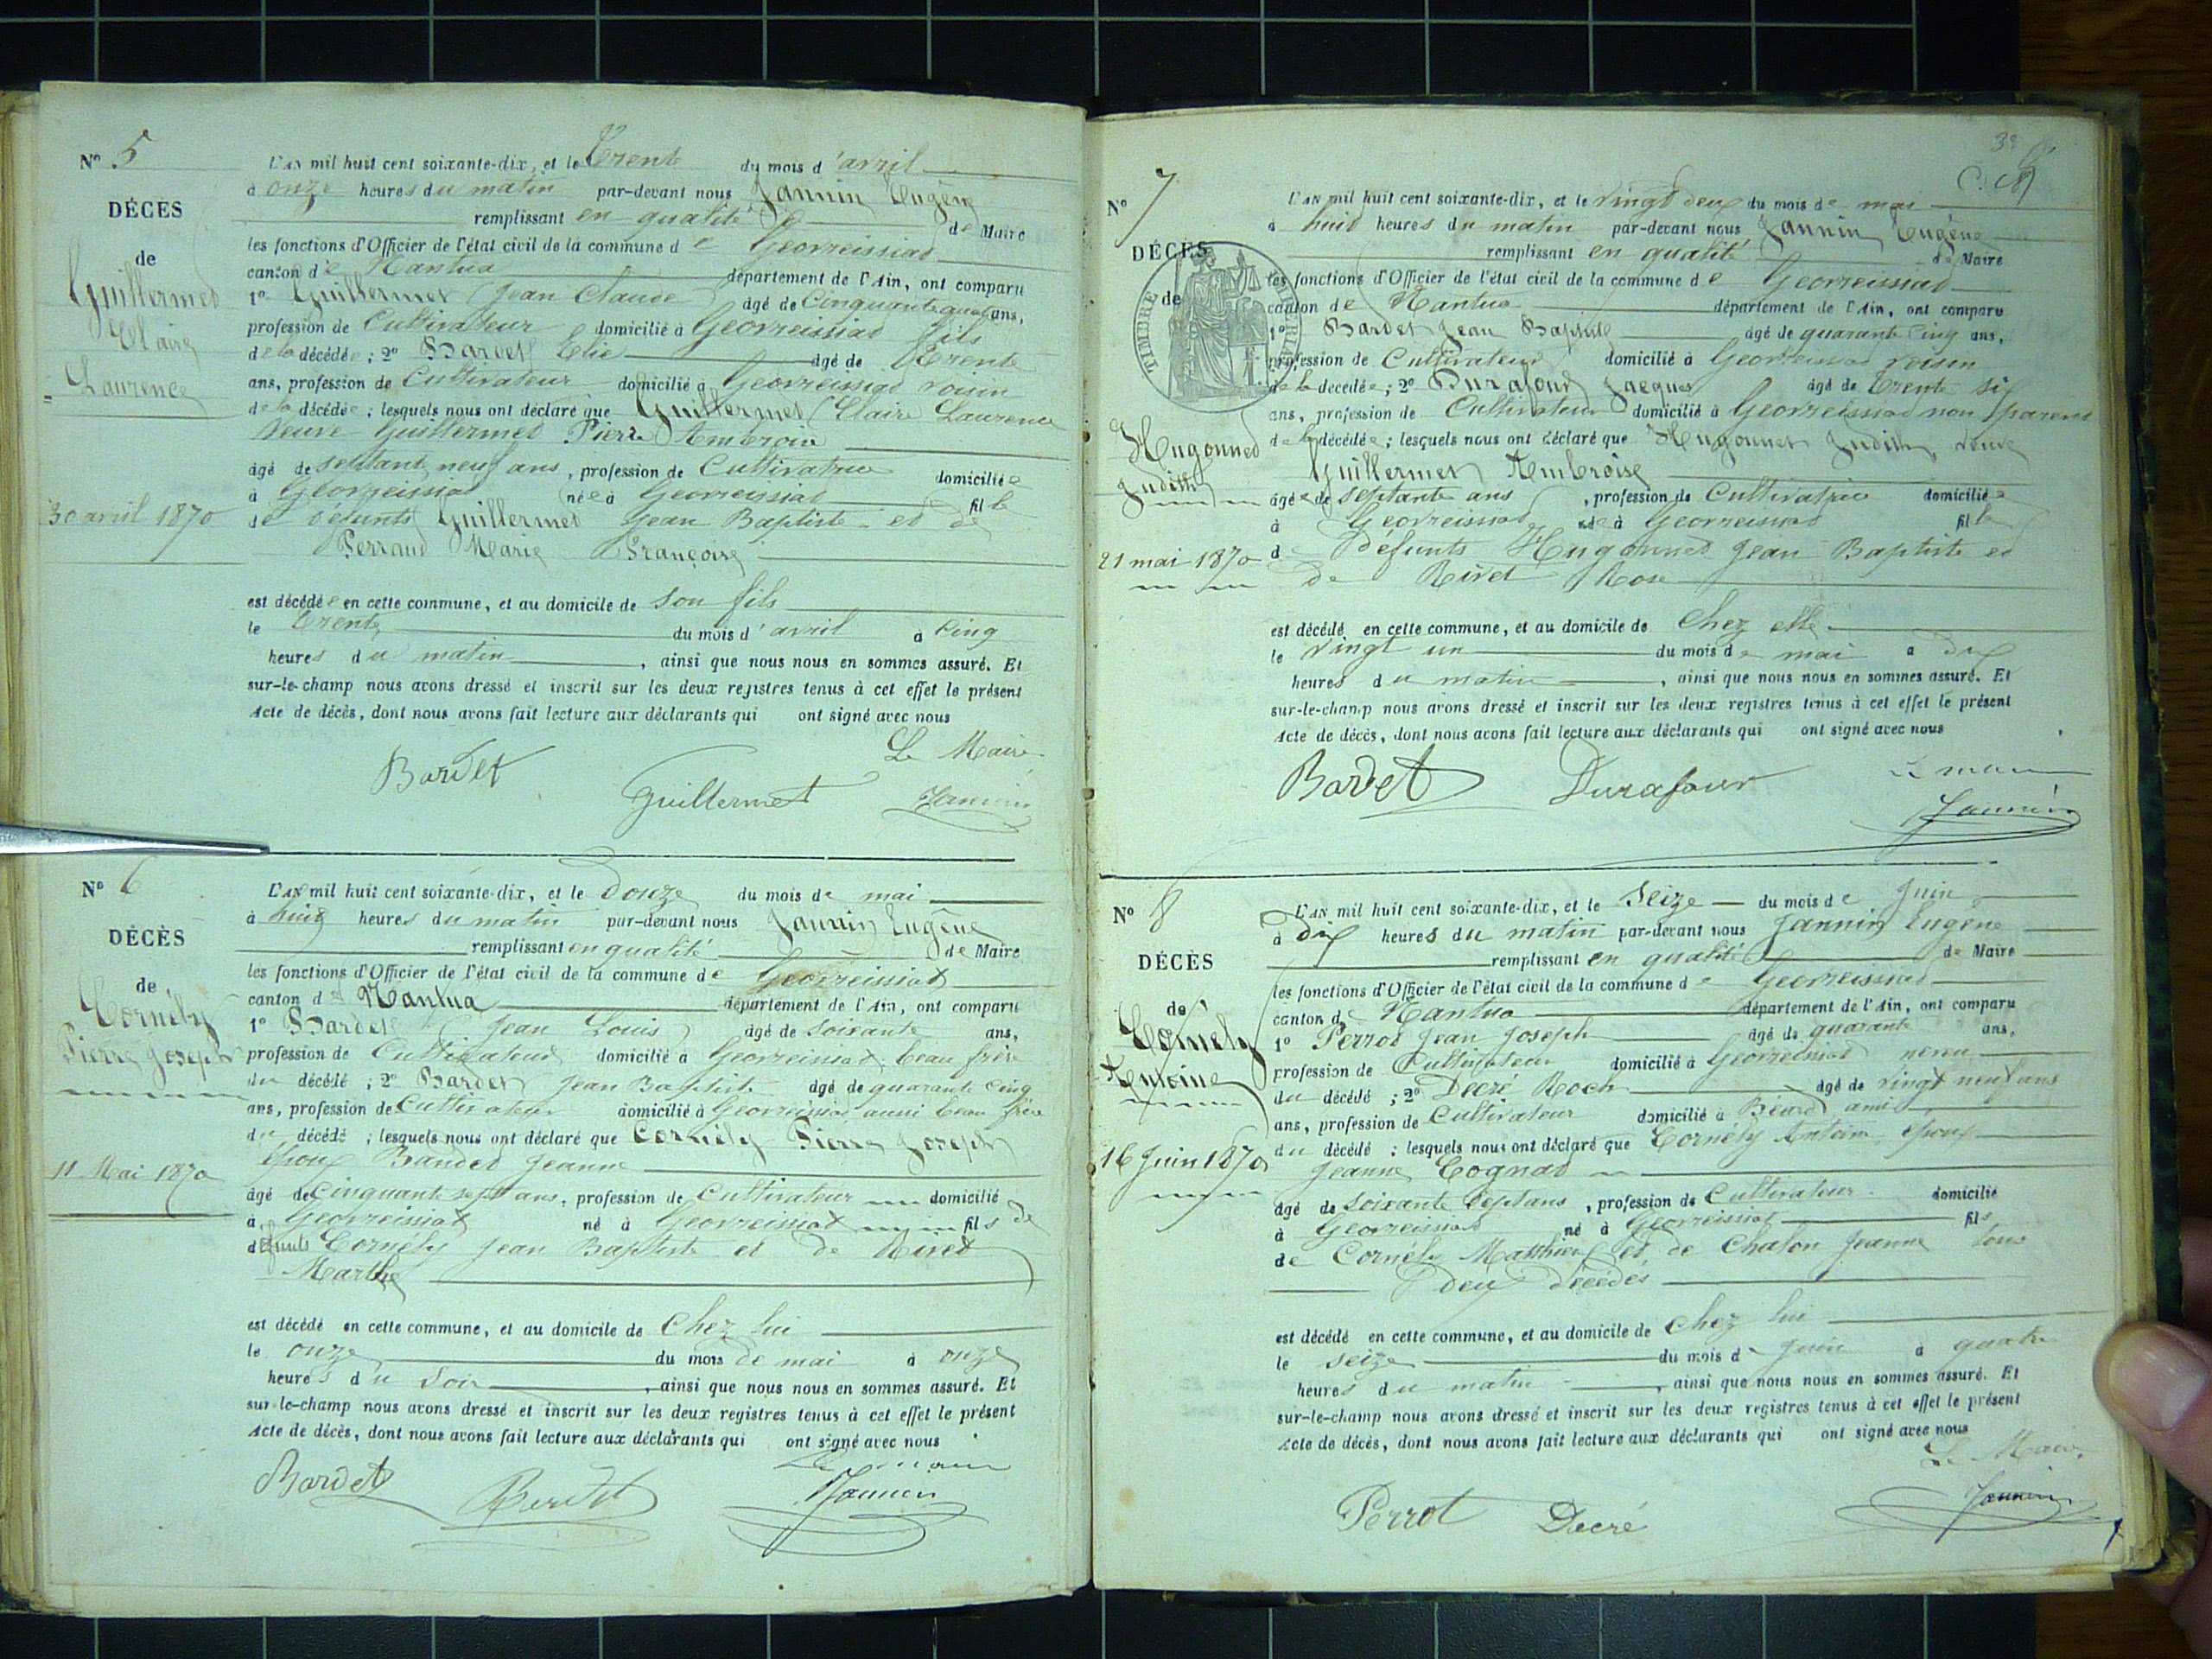 N° 5
DÉCES
de
Guillermet
Claire
Laurence
30 avril 1870
L'AN mil huit cent soixante-dix, et le trente du mois d'avril
à onze heures du matin par-devant nous Jannin Eugène
remplissant en qualité de Maire
les fonctions d'Officier de l'état civil de la commune de Geovreissiat
canton de Nantua département de l'Ain, ont comparu
1° Guillermet Jean Claude âgé de Cinquante quatre ans,
profession de Cultivateur domicilié à Geovreissiat fils
de la décédée ; 2° Bardet Elie âgé de trente
ans, profession de Cultivateur domicilié à Geovreissiat voisin
de la décédée ; lesquels nous ont déclaré que Guillermet Claire Laurence
veuve Guillermet Pierre Ambroise
âgé de septante neuf ans, profession de Cultivatrice domiciliée
à Geovreissiat née à Geovreissiat fille
de défunts Guillermet Jean Baptiste et de
Perraud Marie Françoise
est décédée en cette commune, et au domicile de son fils
le trente du mois d'avril à cinq
heures du matin, ainsi que nous nous en sommes assuré. Et
sur-le-champ nous avons dressé et inscrit sur les deux registres tenus à cet effet le présent
Acte de décès, dont nous avons fait lecture aux déclarants qui ont signé avec nous
Le Maire
Bardet Guillermet Jannin
N° 6
DÉCÈS
de
Cornély
Pierre Joseph
11 Mai 1870
L'AN mil huit cent soixante-dix, et le douze du mois de mai
à huit heures du matin par-devant nous Jannin Eugène
remplissant en qualité de Maire
les fonctions d'Officier de l'état civil de la commune de Geovreissiat
canton de Nantua département de l'Ain, ont comparu
1° Bardet Jean Louis âgé de soixante ans,
profession de Cultivateur domicilié à Geovreissiat beau frère
du décédé ; 2° Bardet Jean Baptiste âgé de quarante cinq
ans, profession de Cultivateur domicilié à Geovreissiat aussi beau frère
du décédé ; lesquels nous ont déclaré que Cornély Pierre Joseph
époux Bandet Jeanne
âgé de Cinquante sept ans, profession de Cultivateur domicilié
à Geovreissiat né à Geovreissiat fils de
défunts Cornély Jean Baptiste et de Rivet
Marthe
est décédé en cette commune, et au domicile de Chez lui
le onze du mois de mai à onze
heures du soir, ainsi que nous nous en sommes assuré. Et
sur-le-champ nous avons dressé et inscrit sur les deux registres tenus à cet effet le présent
Acte de décès, dont nous avons fait lecture aux déclarants qui ont signé avec nous
Le maire
Bardet Bardet Jannin
N° 7
DÉCÈS
de
TIMBRE
Hugonnet
Judith
21 mai 1870
L'AN mil huit cent soixante-dix, et le vingt deux du mois de mai
à huit heures du matin par-devant nous Jannin Eugène
remplissant en qualité de Maire
les fonctions d'Officier de l'état civil de la commune de Geovreissiat
canton de Nantua département de l'Ain, ont comparu
1° Bardet Jean Baptiste âgé de quarante cinq ans,
profession de Cultivateur domicilié à Geovreissiat voisin
de la décédée ; 2° Durafour Jacques âgé de trente six
ans, profession de Cultivateur domicilié à Geovreissiat non parent
de la décédée ; lesquels nous ont déclaré que Hugonnet Judith, veuve
Guillermet Ambroise
âgée de septante ans, profession de Cultivatrice domiciliée
à Geovreissiat née à Geovreissiat fille
de défunts Hugonnet Jean Baptiste et
de Rivet Rose
est décédé en cette commune, et au domicile de Chez elle
le vingt un du mois de mai à dix
heures du matin, ainsi que nous nous en sommes assuré. Et
sur-le-champ nous avons dressé et inscrit sur les deux registres tenus à cet effet le présent
Acte de décès, dont nous avons fait lecture aux déclarants qui ont signé avec nous
Le maire
Bardet Durafour Jannin
N° 8
DÉCÈS
de
Cornély
Antoine
16 Juin 1870
L'AN mil huit cent soixante-dix, et le Seize du mois de Juin
à dix heures du matin par-devant nous Jannin Eugène
remplissant en qualité de Maire
les fonctions d'Officier de l'état civil de la commune de Geovreissiat
canton de Nantua département de l'Ain, ont comparu
1° Perrot Jean Joseph âgé de quarante ans,
profession de Cultivateur domicilié à Geovreissiat neveu
du décédé ; 2° Decré Roch âgé de vingt neuf ans
ans, profession de Cultivateur domicilié à Béard ami
du décédé ; lesquels nous ont déclaré que Cornély Antoine, époux
Jeanne Cognat
âgé de soixante sept ans, profession de Cultivateur domicilié
à Geovreissiat né à Geovreissiat fils
de Cornély Matthieu et de Chalon Jeanne tous
deux décédés
est décédé en cette commune, et au domicile de Chez lui
le seize du mois de Juin à quatre
heures du matin, ainsi que nous nous en sommes assuré. Et
sur-le-champ nous avons dressé et inscrit sur les deux registres tenus à cet effet le présent
Acte de décès, dont nous avons fait lecture aux déclarants qui ont signé avec nous
Le Maire
Perrot Decré Jannin